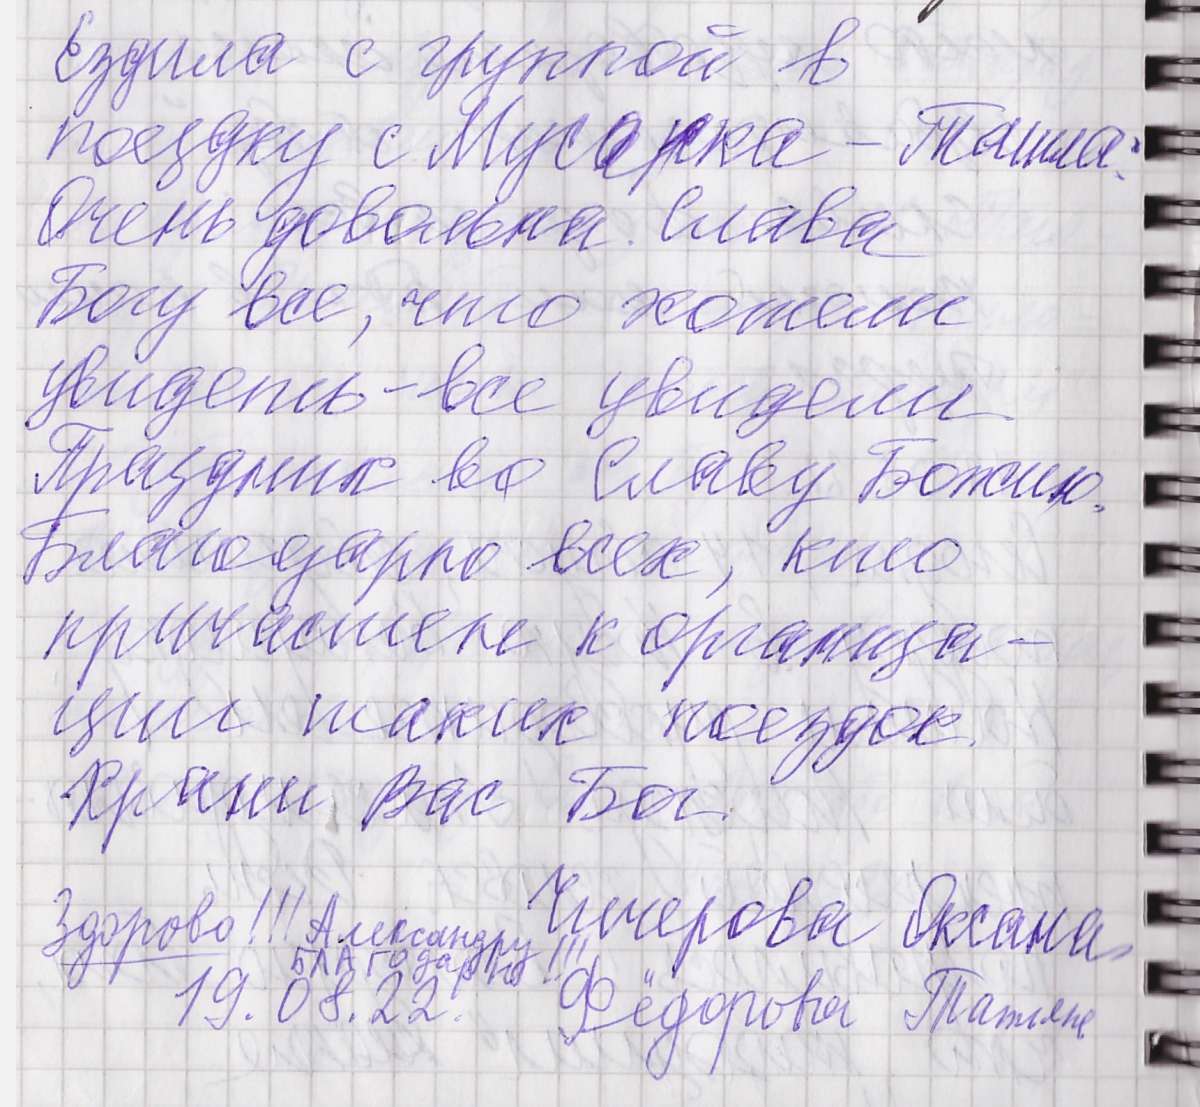 Ездила с группой в
поездку с Мусорка – Ташла.
Очень довольна. Слава
Богу все, что хотели
увидеть – все увидели.
Праздник во Славу Божию.
Благодарю всех, кто
причастен к организа-
ции таких поездок.
Храни Вас Бог.
Чичерова Оксана
Здорово!!! Александру
благодарна!!!
19.08.22. Фёдорова Татьяна